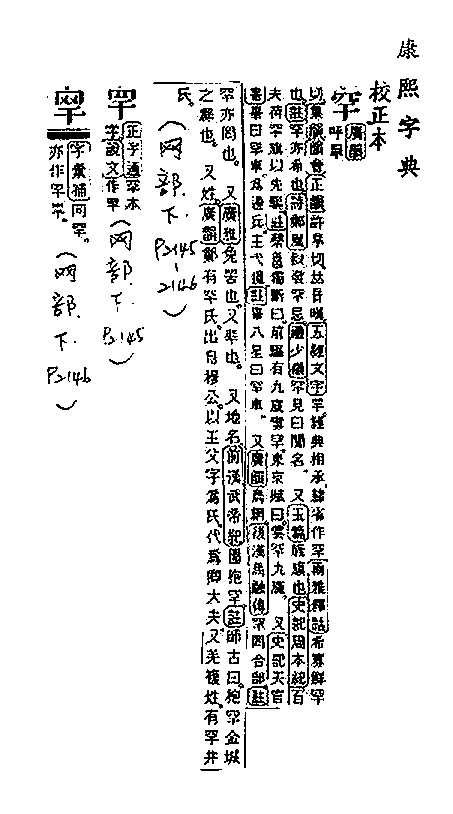 康熙字典
校正本
罕 廣韻呼旱
切集韻韻會正韻許旱切𠀤音暵五經文字罕經典相承隸省作罕爾雅釋詁希寡鮮罕
也。註罕亦希也詩鄭風叔發罕忌禮少儀罕見曰聞名 又玉篇旌旗也史記周本紀百
夫荷罕旗以先驅註蔡邕獨斷曰前驅有九旒雲罕東京賦曰雲罕九斿。 又史記天官
書畢曰罕車為邊兵主弋獵註畢八星曰罕車。 又廣韻鳥網後漢馬融傳罕罔合部註
罕亦罔也。 又廣雅兔罟也又畢也。 又地名前漢武帝紀圍枹罕註師古曰枹罕金城
之縣也。又姓廣韻鄭有罕氏出自穆公。以王父字爲氏代爲卿大夫又羌複姓。有罕幵
氏。
(网部.下.P2145-2146)
罕 正字通罕本字說文作罕 (网部.下.P2145)
字彙補同罕。亦作罕 (网部.下.P2146)